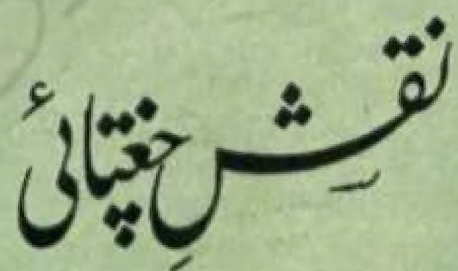 نقشِ چغتائی